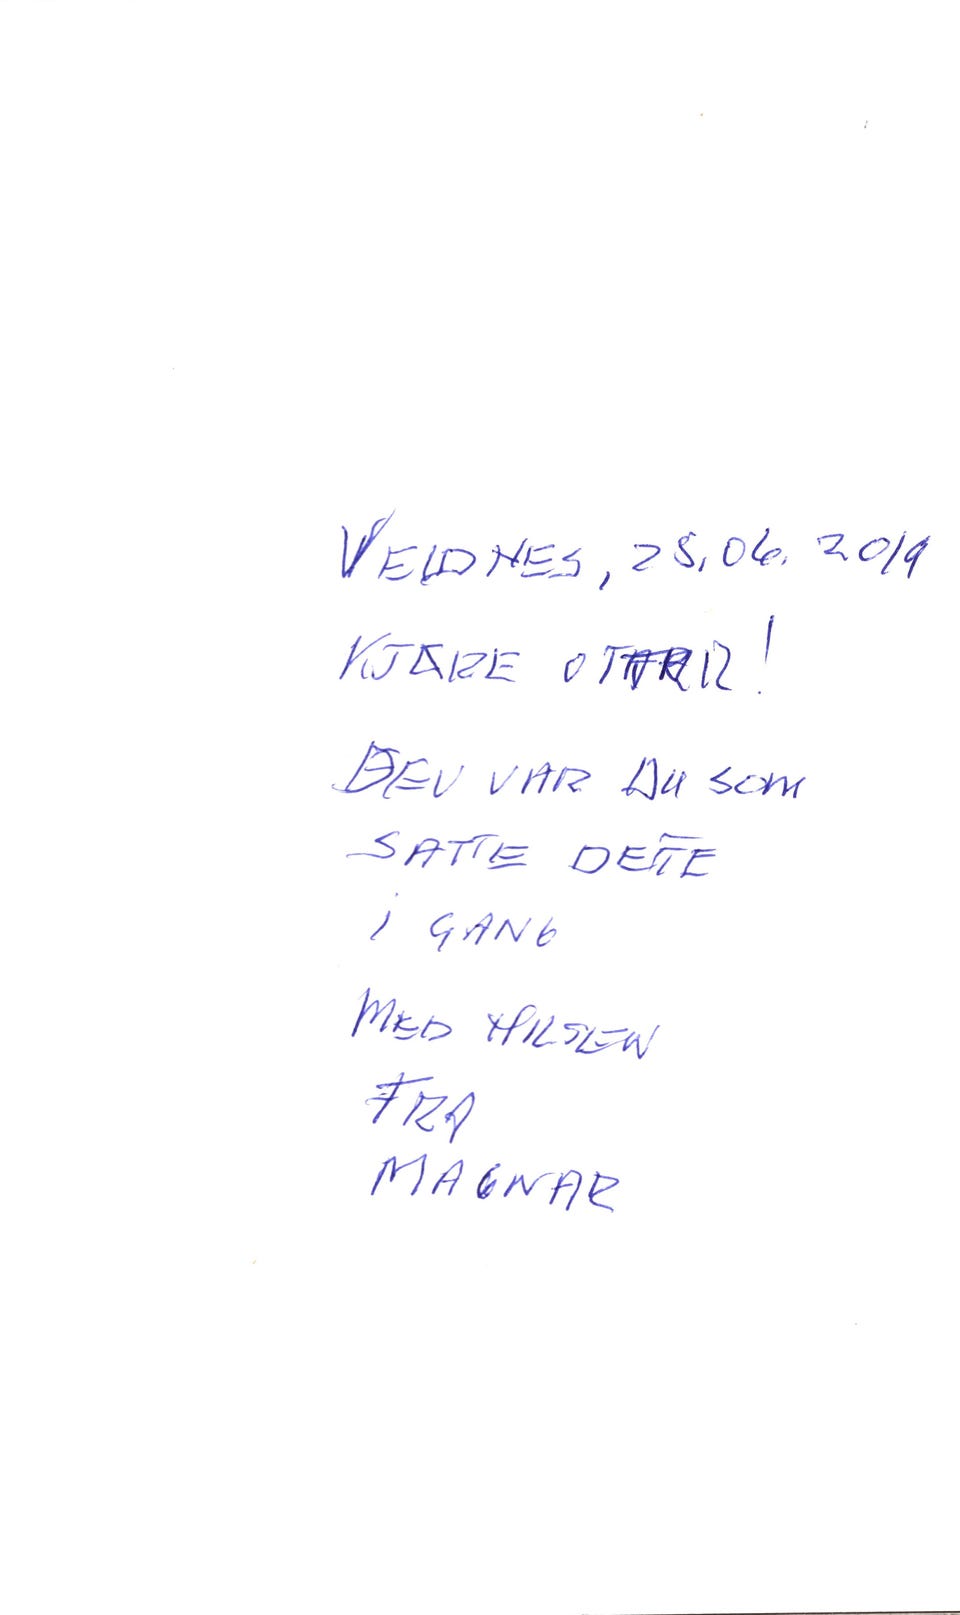 VELDNES, 25.06.2019
KJÆRE OTTAR!
DEV VAR DU SOM
SATTE DETTE
i GANG
MED HILSEN
FRA
MAGNAR